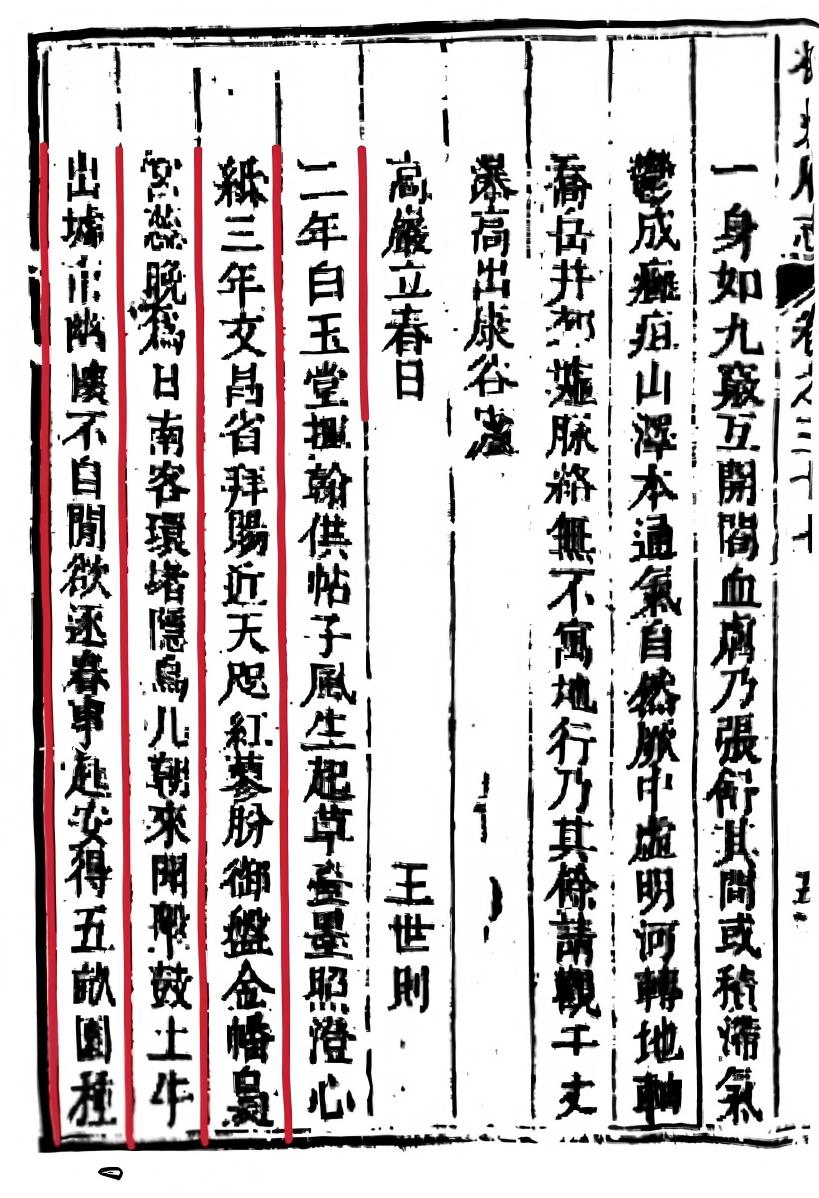 卷之三十
五
一身如九竅互開閤血膚乃張衍其間或積滯氣
鬱成癰疽山澤本通氣自然脈中虛明河轉地軸
喬岳井柯 脉絡無不寓地行乃其餘請觀千丈
瀑高出康谷
高巖立春日
王世則
二年白玉堂揮翰供帖子風生起草臺墨照澄心
紙三年文昌省拜賜近天咫紅蓼胁御盤金幡裊
宮蕊晚為日南客環堵隱烏几朝來聞鼓土牛
出墟市幽懷不自閒欲逐春事起安得五畝園種